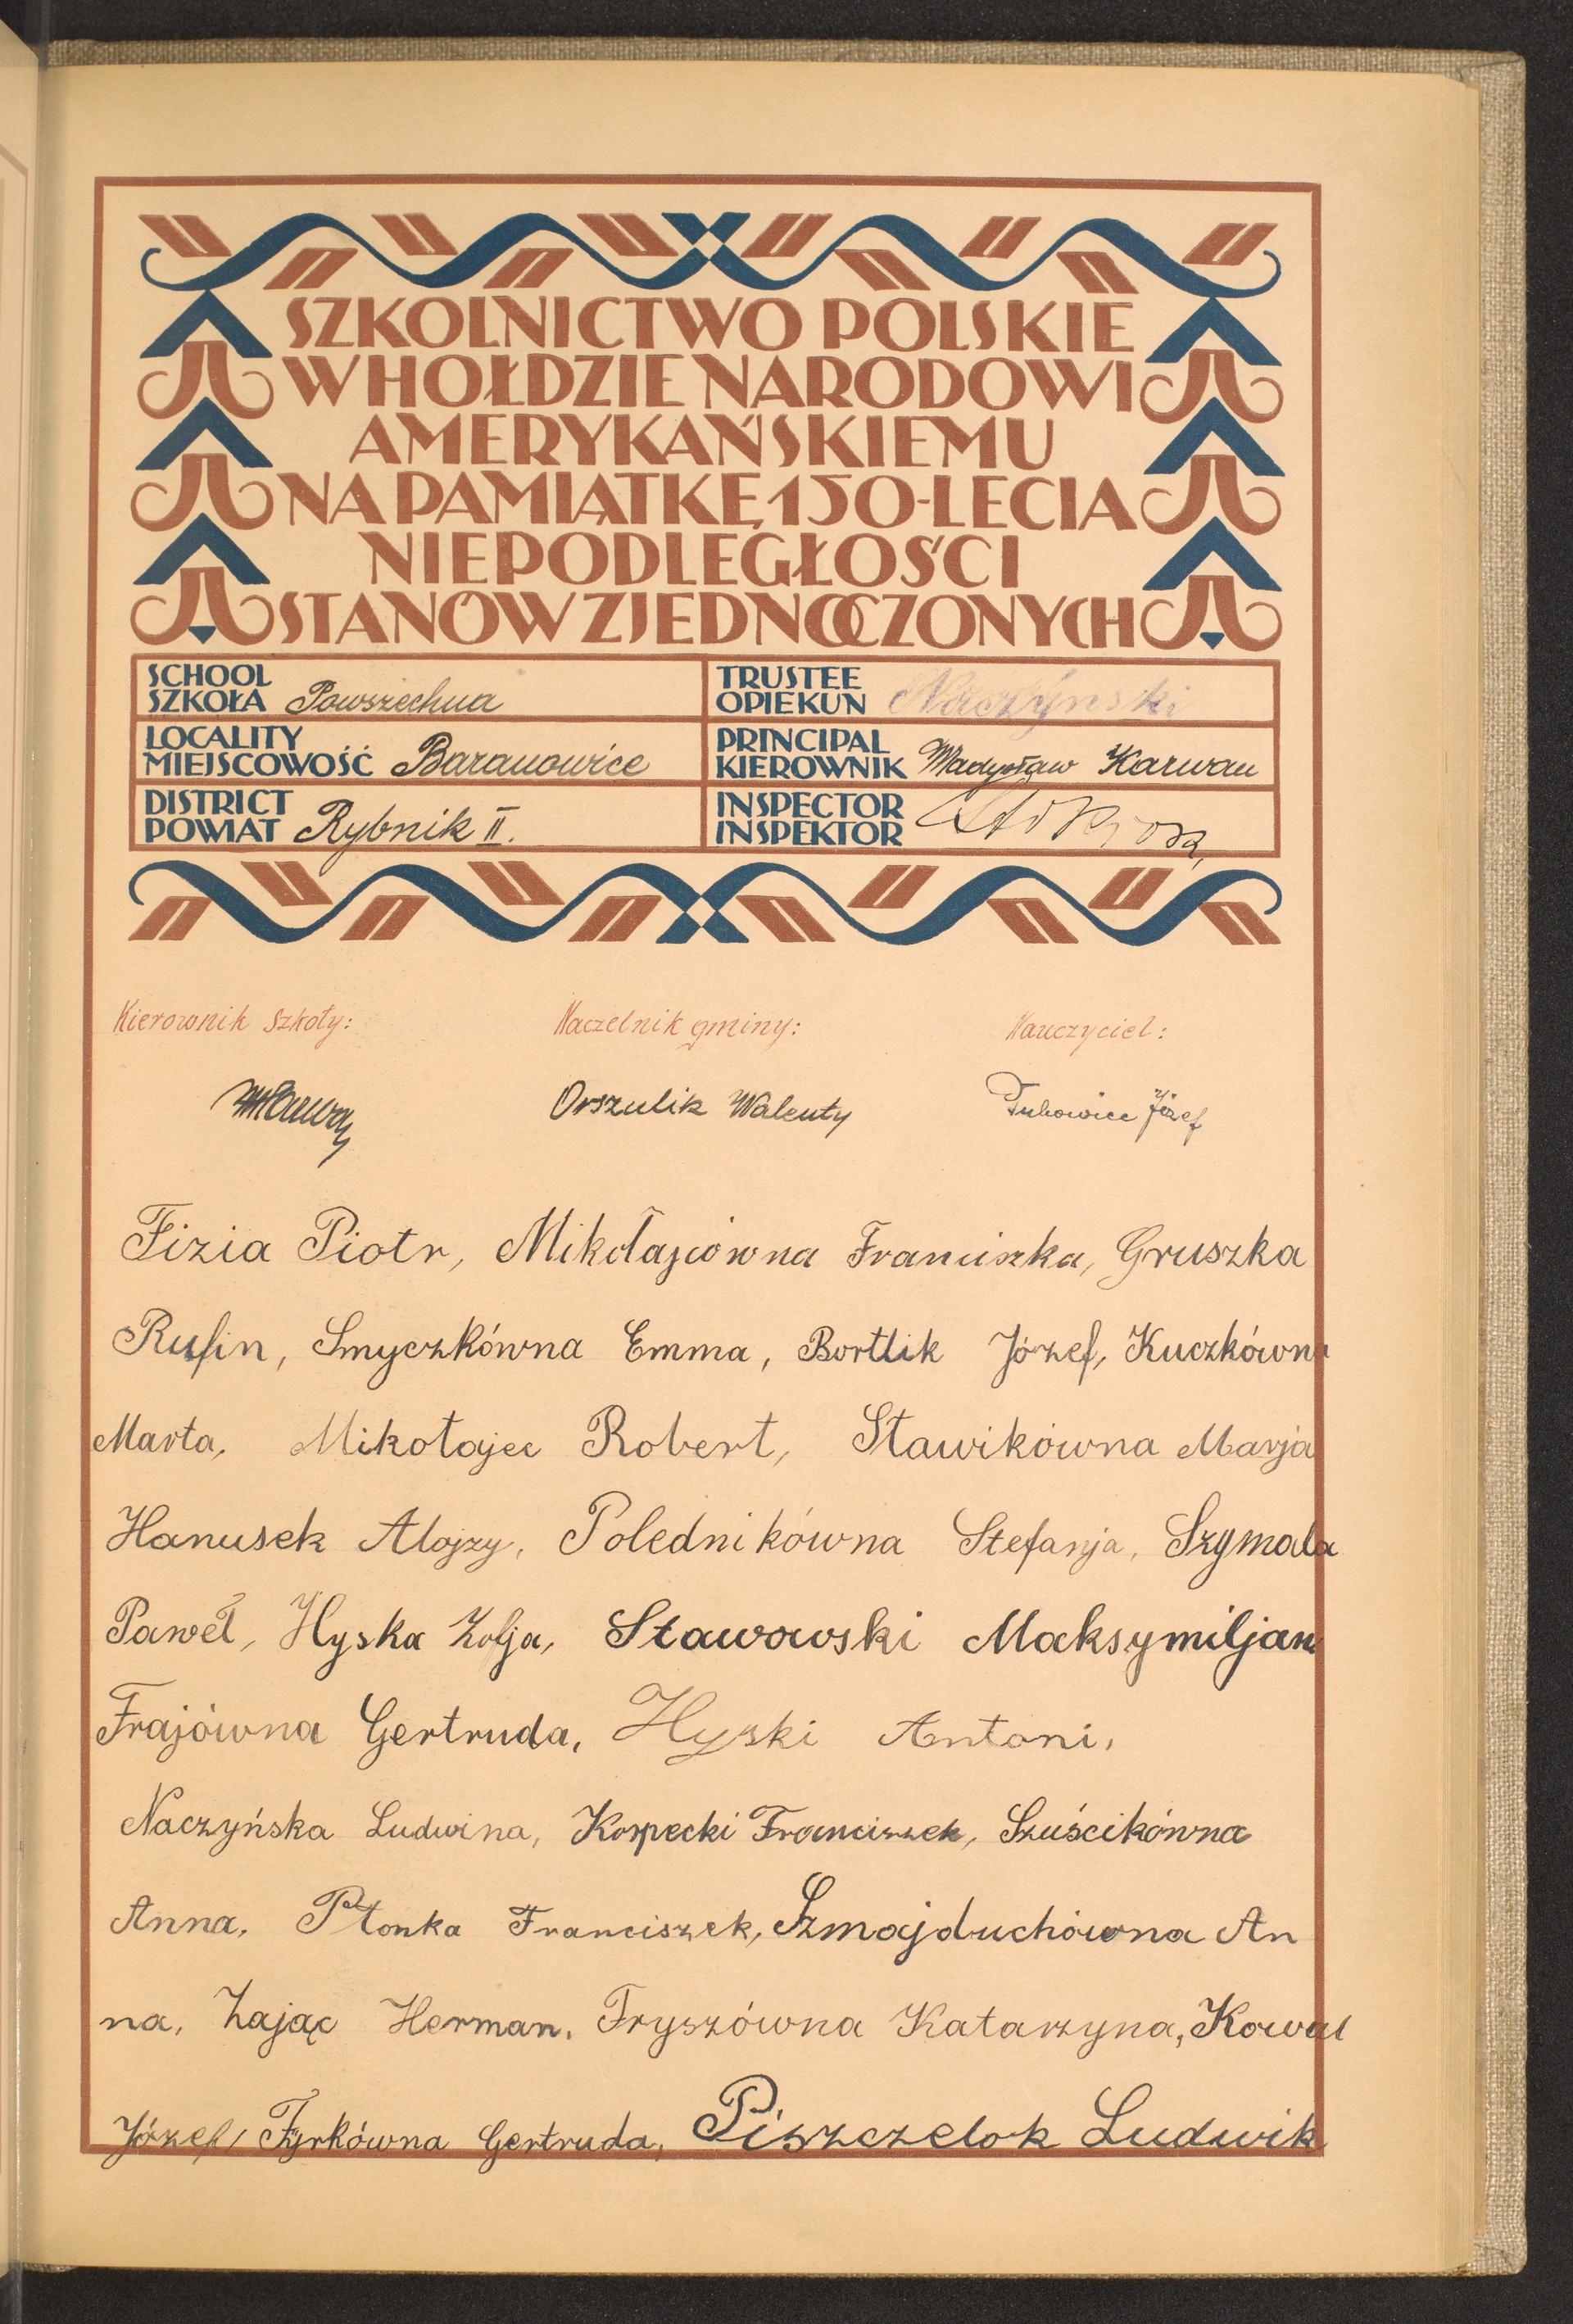 SZKOLNICTWO POLSKIE
W HOŁDZIE NARODOWI
AMERYKAŃSKIEMU
NA PAMIĄTKĘ 150-LECIA
NIEPODLEGŁOŚCI
STANÓW ZJEDNOCZONYCH
SCHOOL
SZKOŁA Powszechna
TRUSTEE
OPIEKUN Naczyński
LOCALITY
MIEJSCOWOŚĆ Baranowice
PRINCIPAL
KIEROWNIK Władysław Karwan
DISTRICT
POWIAT Rybnik II.
INSPECTOR
INSPEKTOR
Kierownik szkoły: Naczelnik gminy: Nauczyciel:
Orszulik Walenty Józef
Fizia Piotr, Mikołajcówna Franciszka, Gruszka
Rufin, Smyczkówna Emma, Bortlik Józef, Kuczkówna
Marta, Mikołajec Robert, Stawikówna Marja
Hanusek Alojzy, Polednikówna Stefanja, Szymala
Paweł, Hyska Zofja, Stawowski Maksymiljan
Frajówna Gertruda, Hyski Antoni,
Naczyńska Ludwina, Korpecki Franciszek, Szuścikówna
Anna, Płonka Franciszek, Szmajduchówna An
na, Zając Herman, Fryszówna Katarzyna, Kowal
Józef, Fyrkówna Gertruda, Piszczelok Ludwik